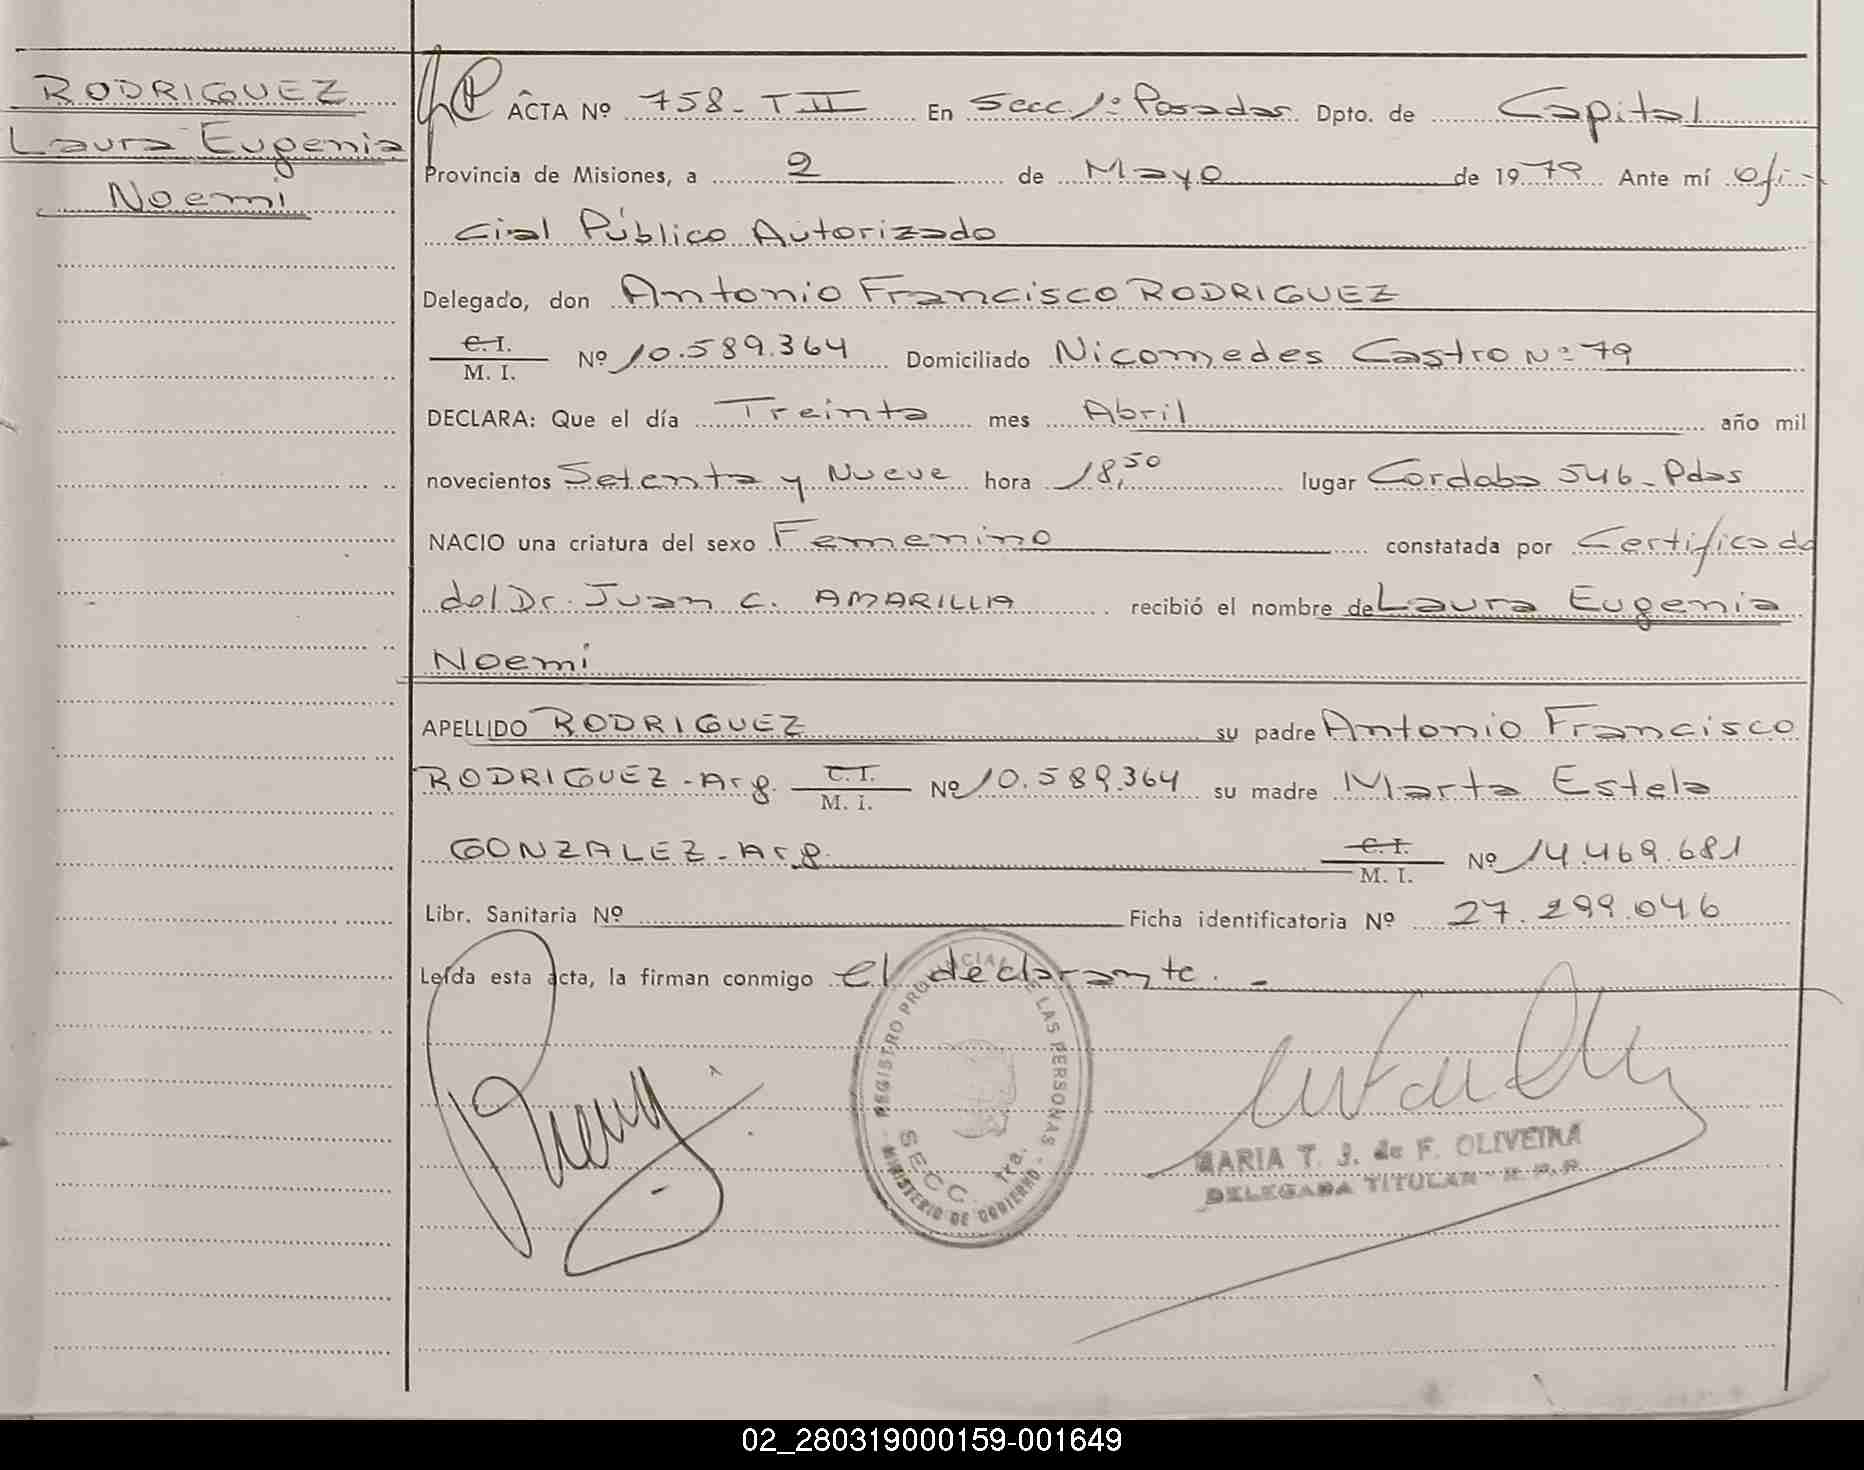 RODRIGUEZ
Laura Eugenia
Noemi
ACTA Nº 758-TII En Secc. 1º Posadas Dpto. de Capital
Provincia de Misiones, a 2 de Mayo de 1979 Ante mí Ofi-
cial Público Autorizado
Delegado, don Antonio Francisco RODRIGUEZ
C. I.
M. I. Nº 10.589.364 Domiciliado Nicomedes Castro Nº 79
DECLARA: Que el día Treinta mes Abril año mil
novecientos Setenta y Nueve hora 18,50 lugar Cordoba 546-Pdas
NACIO una criatura del sexo Femenino constatada por Certificado
del Dr. Juan C. AMARILLIA recibió el nombre de Laura Eugenia
Noemi
APELLIDO RODRIGUEZ su padre Antonio Francisco
RODRIGUEZ-Arg. C. I. M. I. Nº 10.589.364 su madre Marta Estela
GONZALEZ-Arg. C. I. M. I. Nº 14.469.681
Libr. Sanitaria Nº Ficha identificatoria Nº 27.299.046
Leída esta acta, la firman conmigo el declarante. -
REGISTRO PROVINCIAL DE LAS PERSONAS
MINISTERIO DE GOBIERNO
SECC. 1ra.
MARIA T. J. de F. OLIVEIRA
DELEGADA TITULAR - R. P. P.
02_280319000159-001649